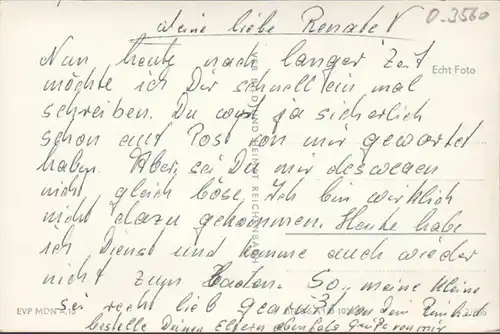 Meine liebe Renate!
O-3560
Nun heute nach langer Zeit
Echt Foto
möchte ich Dir schnell ein mal
schreiben. Du wirst ja sicherlich
schon auf Post von mir gewartet
haben. Aber, sei Du mir deswegen
nicht gleich böse. Ich bin wirklich
nicht dazu gekommen. Heute habe
ich Dienst und komme auch wieder
nicht zum So, meine kleine
sei recht lieb gegrüßt von dem
bestelle Deinen Eltern ebenfalls Grüße von mir
VEB BILD UND HEIMAT REICHENBACH
EVP MDN -,15